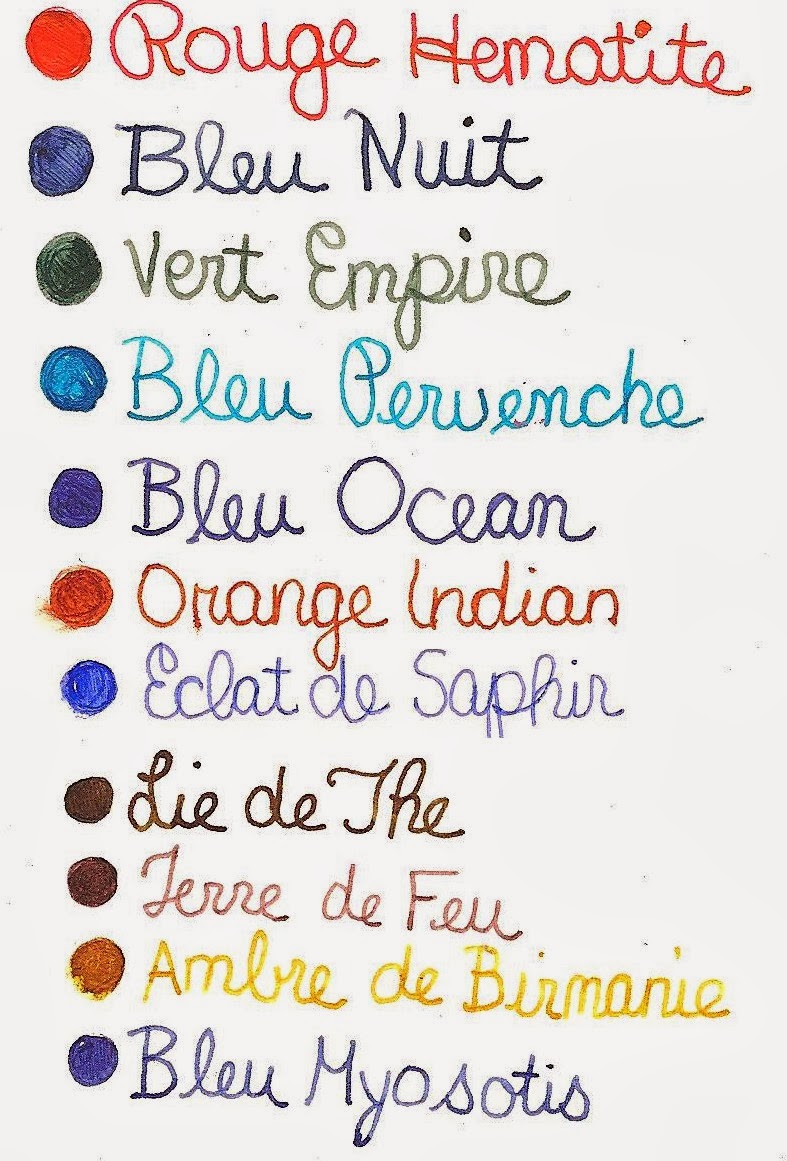 Rouge Hematite
Bleu Nuit
Vert Empire
Bleu Pervenche
Bleu Ocean
Orange Indian
Eclat de Saphir
Lie de The
Terre de Feu
Ambre de Birmanie
Bleu Myosotis